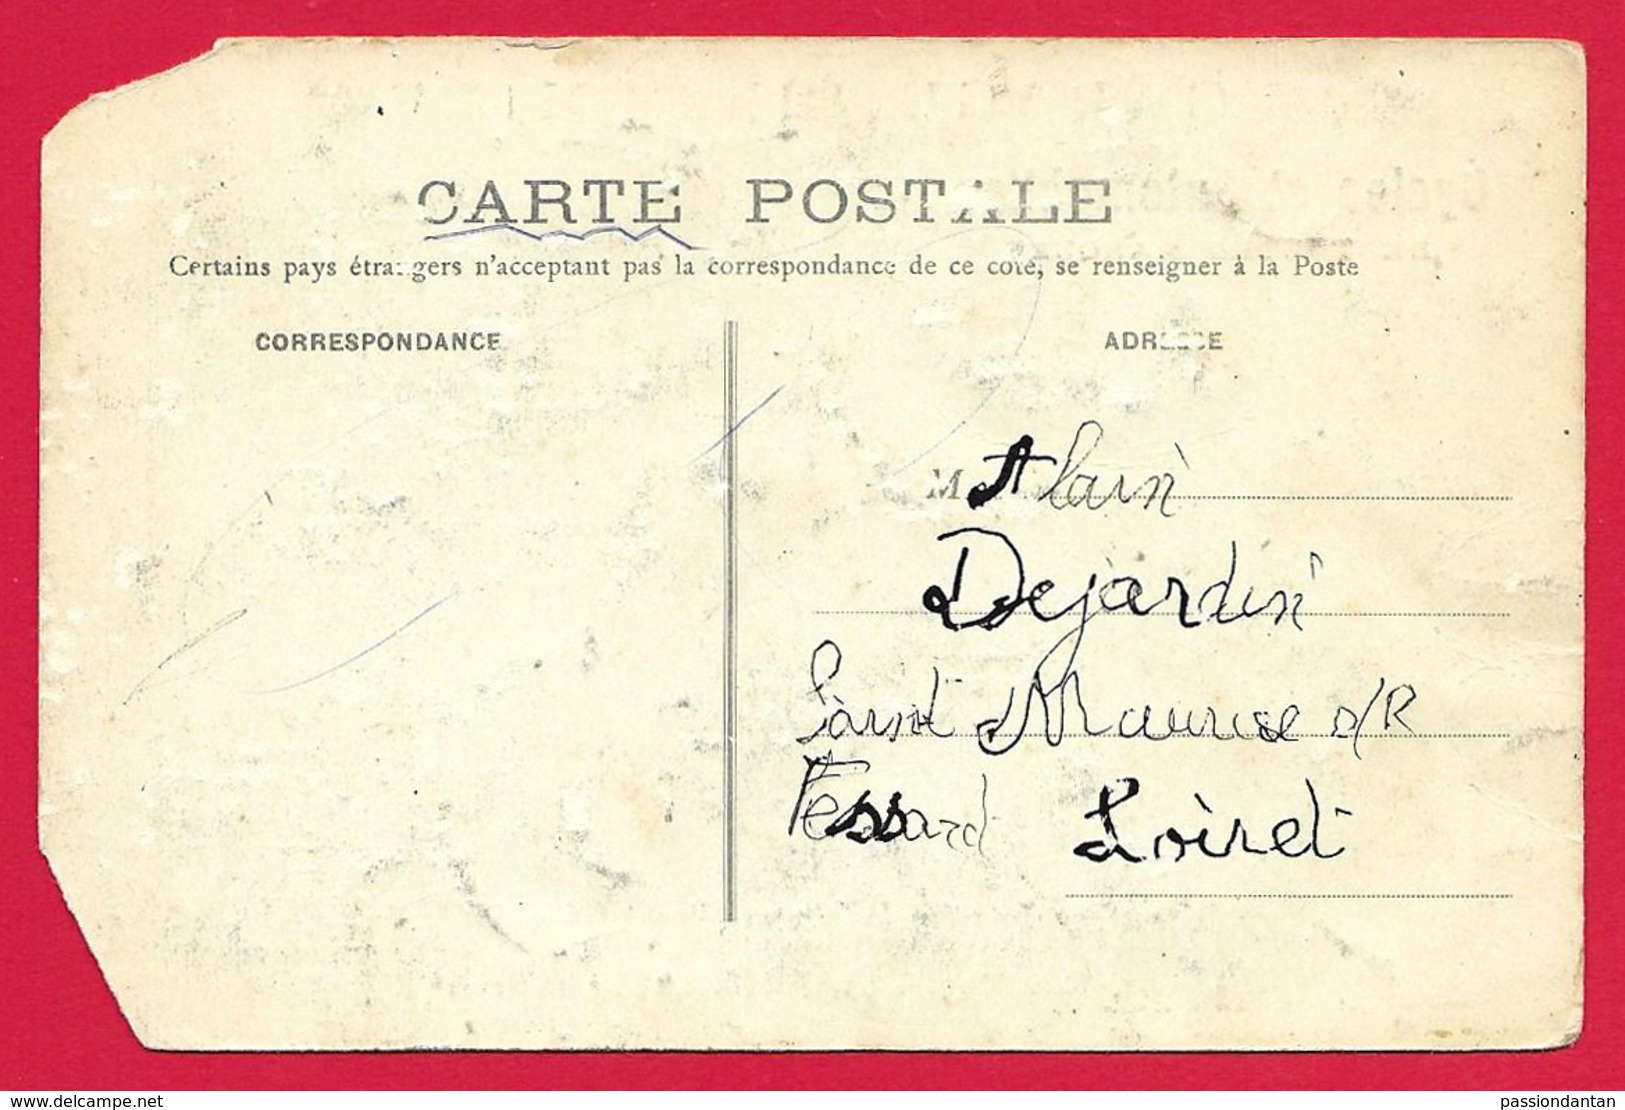 CARTE POSTALE
Certains pays étrangers n'acceptant pas la correspondance de ce coté, se renseigner à la Poste
CORRESPONDANCE
ADRESSE
M Alain
Dejardin
Saint Maurice s/R
Fessard Loiret
www.delcampe.net
passiondantan